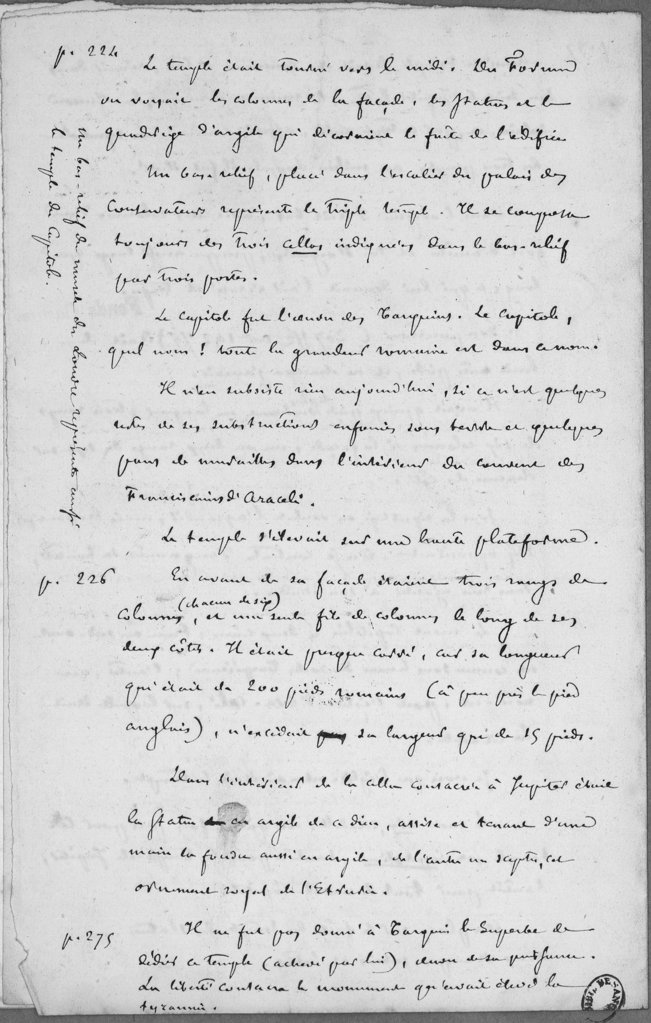 p. 224 Le temple était tourné vers le midi. Du Forum
on voyait les colonnes de la façade, les statues et le
quadrige d'argile qui décoraient le faîte de l'édifice
Un bas-relief, placé dans l'escalier du palais des
Conservateurs représente le triple temple. Il se compose
toujours des trois cellas indiquées dans le bas-relief
par trois portes.
Un bas-relief du musée du Louvre représente aussi
le temple du Capitole.
Le Capitole fut l'œuvre des Tarquins. Le Capitole,
quel nom ! toute la grandeur romaine est dans ce nom.
Il n'en subsiste rien aujourd'hui, si ce n'est quelques
restes de ses substructions enfouies sous terre et quelques
pans de murailles dans l'intérieur du couvent des
Franciscains d'Araceli.
Le temple s'élevait sur une haute plateforme.
p. 226 En avant de sa façade étaient trois rangs de
(chacun de six)
colonnes, et une seule file de colonnes le long de ses
deux côtés. Il était presque carré, car sa longueur
qui était de 200 pieds romains (à peu près le pied
anglais), n'excédait sa largeur que de 15 pieds.
Dans l'intérieur de la cella consacrée à Jupiter était
la statue en argile de ce dieu, assise et tenant d'une
main la foudre aussi en argile, de l'autre un sceptre, cet
ornement royal de l'Etrurie.
p. 275 Il ne fut pas donné à Tarquin le Superbe de
dédier ce temple (achevé par lui), œuvre de sa puissance.
La liberté consacra le monument qu'avait élevé la
tyrannie.